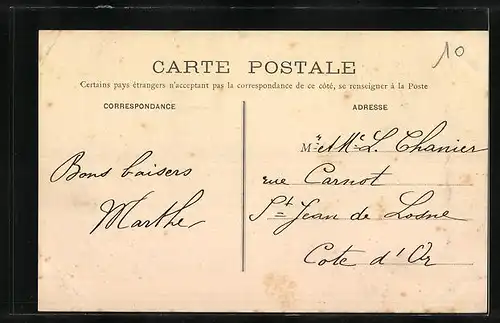 10
CARTE POSTALE
Certains pays étrangers n'acceptant pas la correspondance de ce côté, se renseigner à la Poste
CORRESPONDANCE
ADRESSE
Bons baisers
Marthe
Mr et Me L. Chanier
rue Carnot
St= Jean de Losne
Cote d'Or